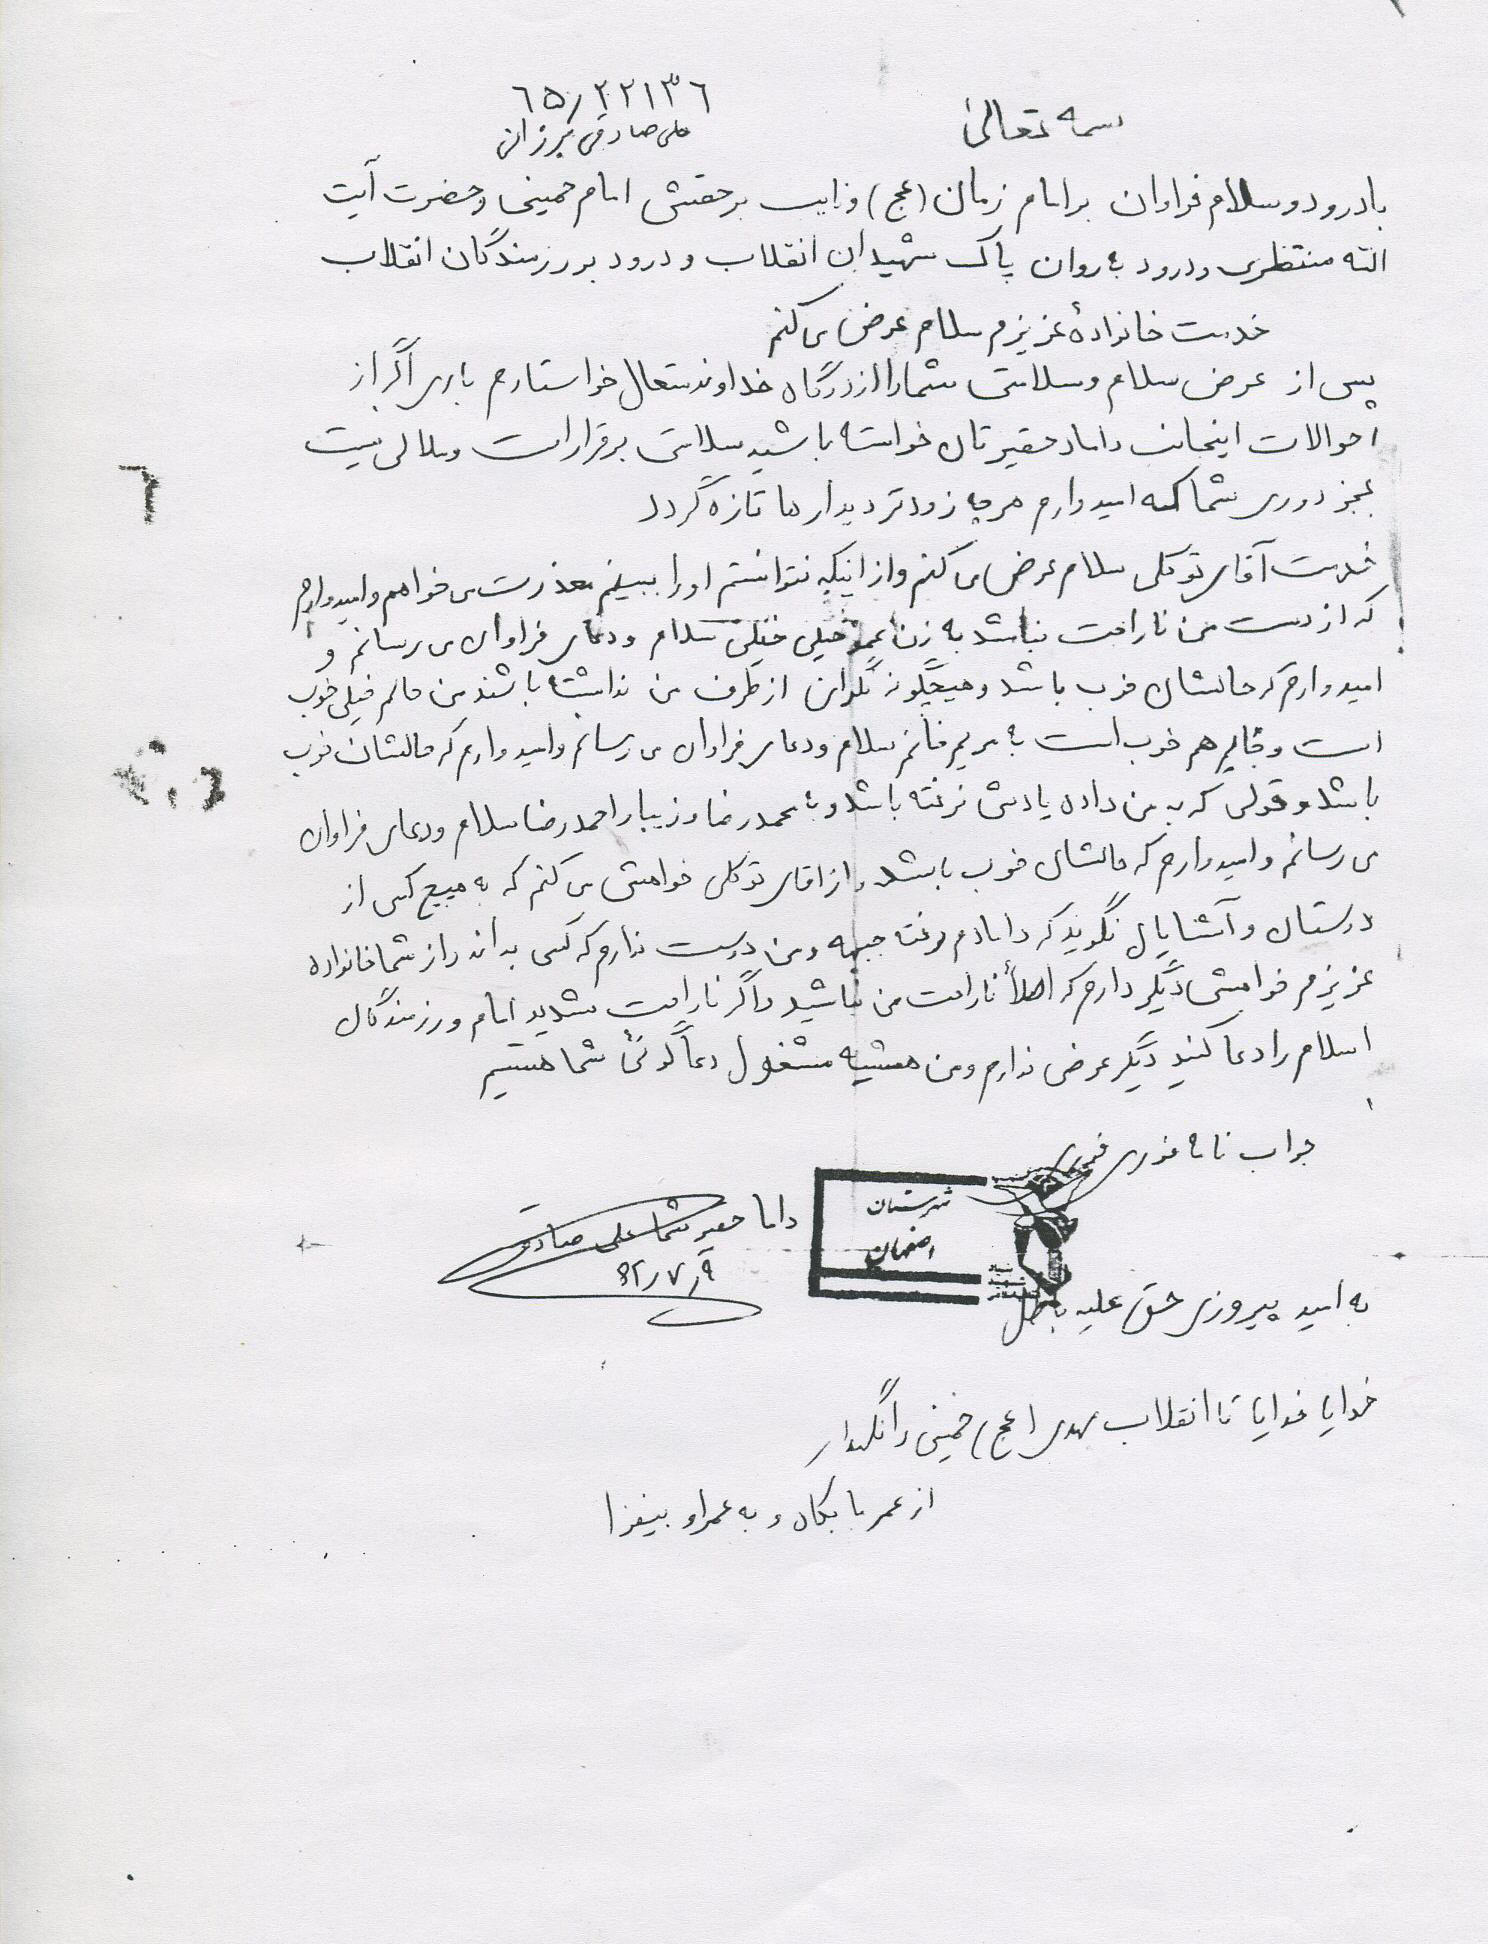 بسمه تعالی
۶۵/۲۲۱۳۶
علی صادقی برزانی
با درود و سلام فراوان بر امام زمان (عج) و نایب برحقش امام خمینی و حضرت آیت
الله منتظری و درود به روان پاک شهیدان انقلاب و درود بر رزمندگان انقلاب
خدمت خانوادهٔ عزیزم سلام عرض می کنم
پس از عرض سلام و سلامتی شما را از درگاه خداوند متعال خواستارم باری اگر از
احوالات اینجانب داماد حقیرتان خواسته باشید سلامتی برقرار است و ملالی نیست
بجز دوری شما که امیدوارم هر چه زودتر دیدارها تازه گردد
خدمت آقای توکلی سلام عرض می کنم و از اینکه نتوانستم او را ببینم معذرت می خواهم و امیدوارم
که از دست من ناراحت نباشد به زن عمو خیلی خیلی سلام و دعای فراوان می رسانم و
امیدوارم که حالشان خوب باشد و هیچگونه نگران از طرف من نداشته باشند من حالم خیلی خوب
است و جایم هم خوب است به مریم خانم سلام و دعای فراوان می رسانم و امیدوارم که حالشان خوب
باشد و قولی که به من داده یادش نرفته باشد و به محمدرضا و زیبا و احمدرضا سلام و دعای فراوان
می رسانم و امیدوارم که حالشان خوب باشد و از اقای توکلی خواهش می کنم که به هیچ کس از
دوستان و آشنایان نگوید که دامادم رفته جبهه و من دوست ندارم که کسی بداند و از شما خانواده
عزیزم خواهش دیگر دارم که اصلاً ناراحت من نباشید و اگر ناراحت شدید امام و رزمندگان
اسلام را دعا کنید دیگر عرضی ندارم و من همیشه مشغول دعاگوئی شما هستم
جواب نامه فوری فوری
شهرستان
اصفهان
داماد حقیر شما علی صادقی
۶۲/۷/۹
به امید پیروزی حق علیه باطل
خدایا خدایا تا انقلاب مهدی (عج) خمینی را نگهدار
از عمر ما بکاه و به عمر او بیفزا